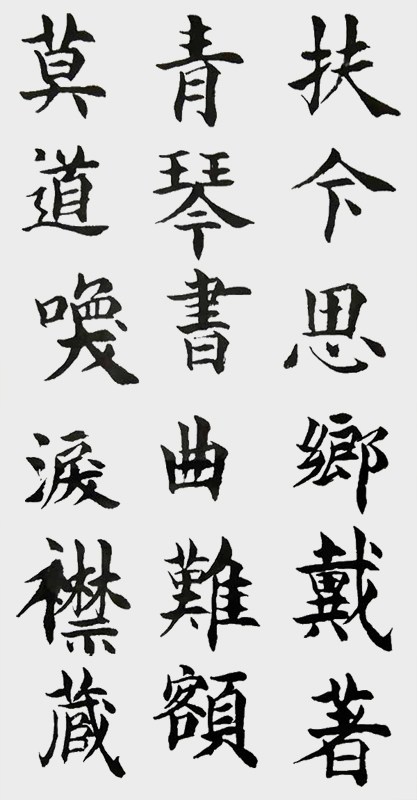 扶思鄉戴著
青琴書曲難額
莫道喚淚襟蔵